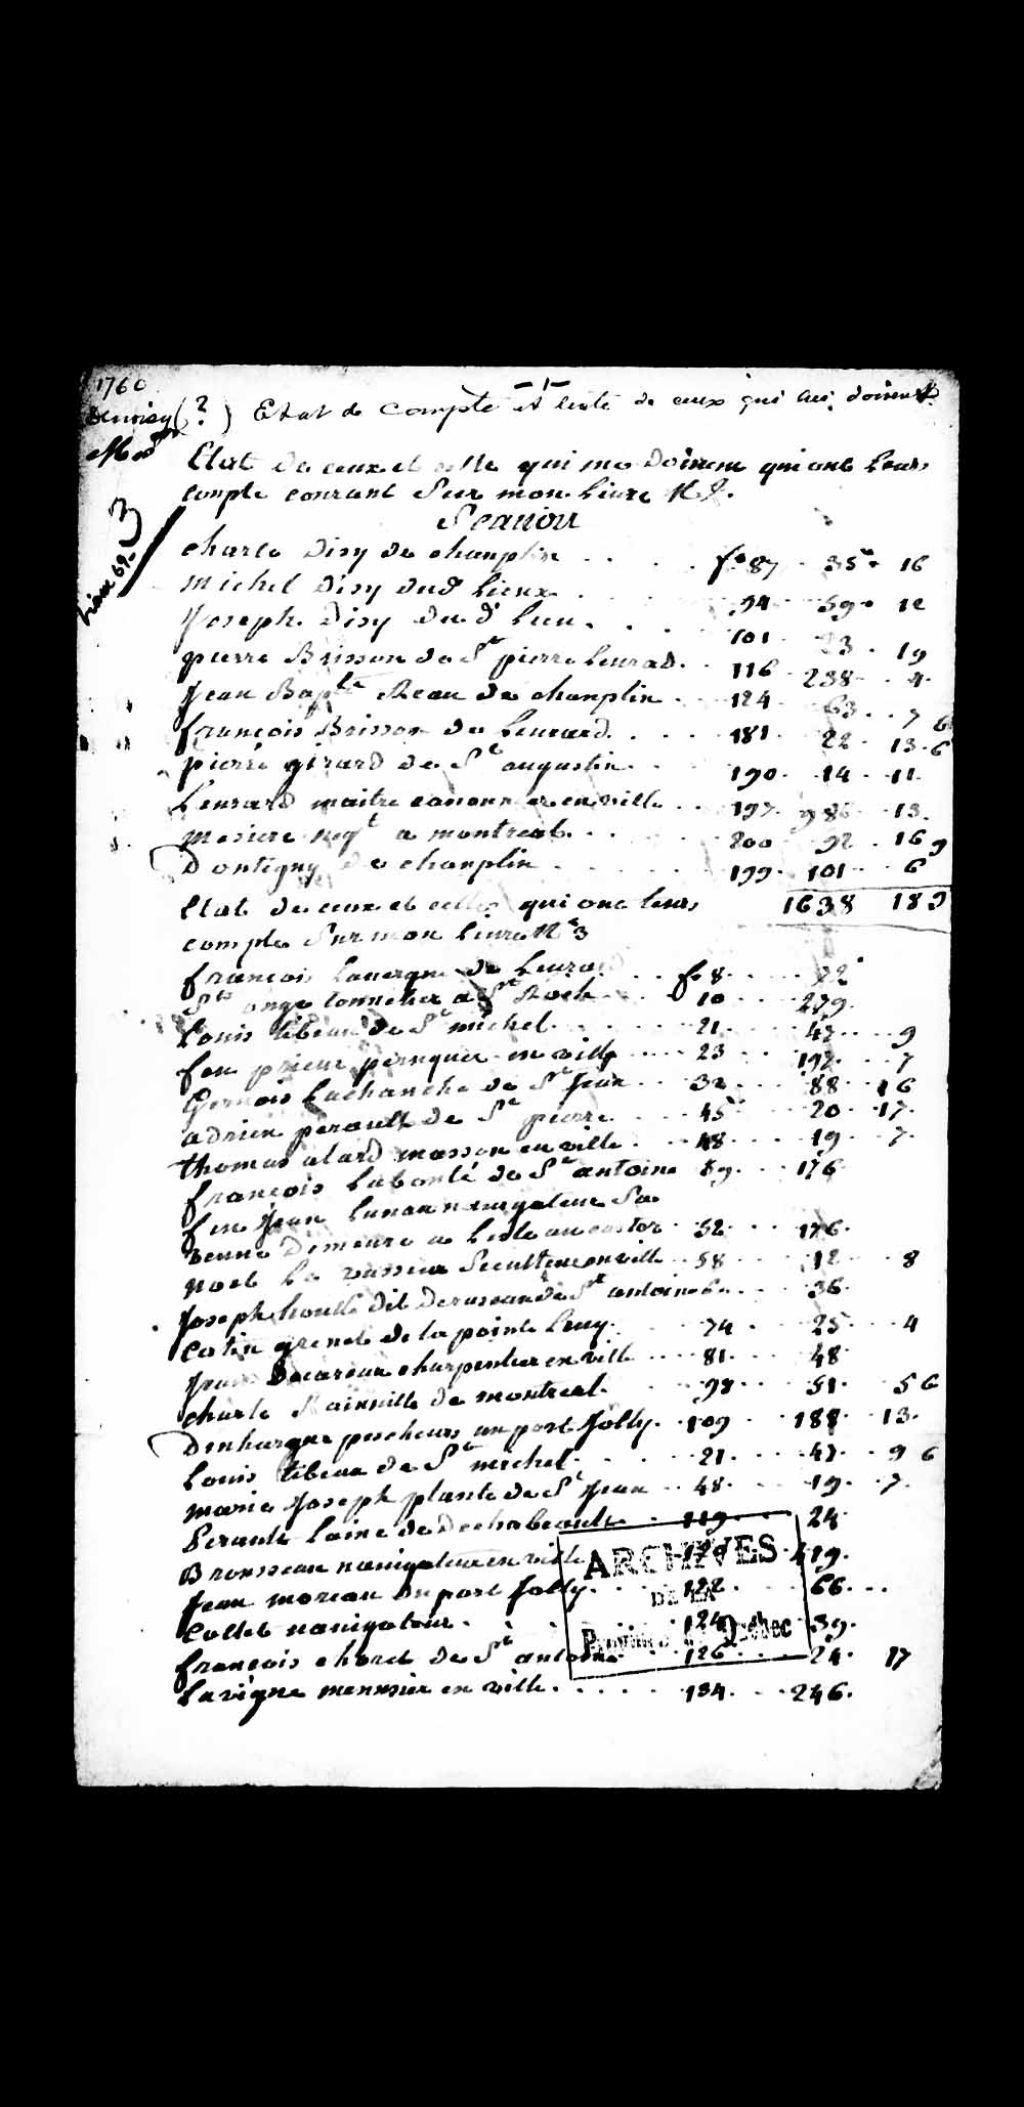 1760
- 1 -
(?) Etat de Compte et liste de ceux qui lui doivent
Etat de ceux et celle qui me doivent qui ont leurs
compte courant Sur mon Livre N 2.
Scavoir
3
charle Disy de chanplin . . . . fo 87 . 35 . 16
michel Disy dud Lieux . . 94 . 59 . 12
Joseph Disy du d Lieu . . . 101 . 23 . 19
pierre Brisson de St pierre . . 116 . 238 . 4
Jean Bapte Reau de chanplin . . 124 . 63 . 7 6
françois Brisson de . . . 181 . 22 . 13 . 6
pierre girard de St augustin . . 190 . 14 . 11
maitre en ville . . 197 . 986 . 13
mesiere negt a montreal . . . 200 . 92 . 16 9
Dontigny de chanplin . . . . 199 . 101 . 6
Etat de ceux et celles qui ont leurs 1638 18 9
compte Sur mon Livre N 3
francois Lavergne de . . fo 8 . . . 22
St onge tonnelier a St Roch . . 10 . . . 279
Louis tibeau de St michel . . . 21 . . . 47 . . 9
feu prieur peruquier en ville . . . 23 . . . 197 . . 7
Gervais Lachanche de St Jean . . 32 . . . 88 . . 16
adrien perault de St pierre . . 45 . . . 20 . 17
thomas alard masson en ville . . 48 . . . 19 . . 7
françois Labonté de St antoine 49 . . . 176
feu Jean navigateur Sa
veuve Demeure a . 52 . . . 176
noel Le vasseur Sculteur en ville . . 58 . . . 12 . . 8
Joseph houlle dit de St antoine . . . 36
Catin grenet de la pointe Levy . 74 . . 25 . . 4
Jean charpentier en ville . . . 81 . . . 48
charle Rainville de montreal . . . 98 . . . 51 . . 5 6
pecheurs au port Jolly . 109 . . . 188 . . 13
Louis tibeau de St michel . . . 21 . . . 47 . . 9 6
marie Joseph plante de St Jean . . 48 . . . 19 . . 7
Perault Laine de Dechabeault . . 119 . . . 24
Brousseau navigateur en ville 419
Jean moreau Du port Jolly . . . 122 . . . 66 . . .
Collet navigateur . . . . 124 . . 39
françois choret de St antoine . . 126 . . . 24 . 17
Lavigne menusie en ville . . . . . 134 . . . 246
ARCHIVES
DE LA
Province de Québec